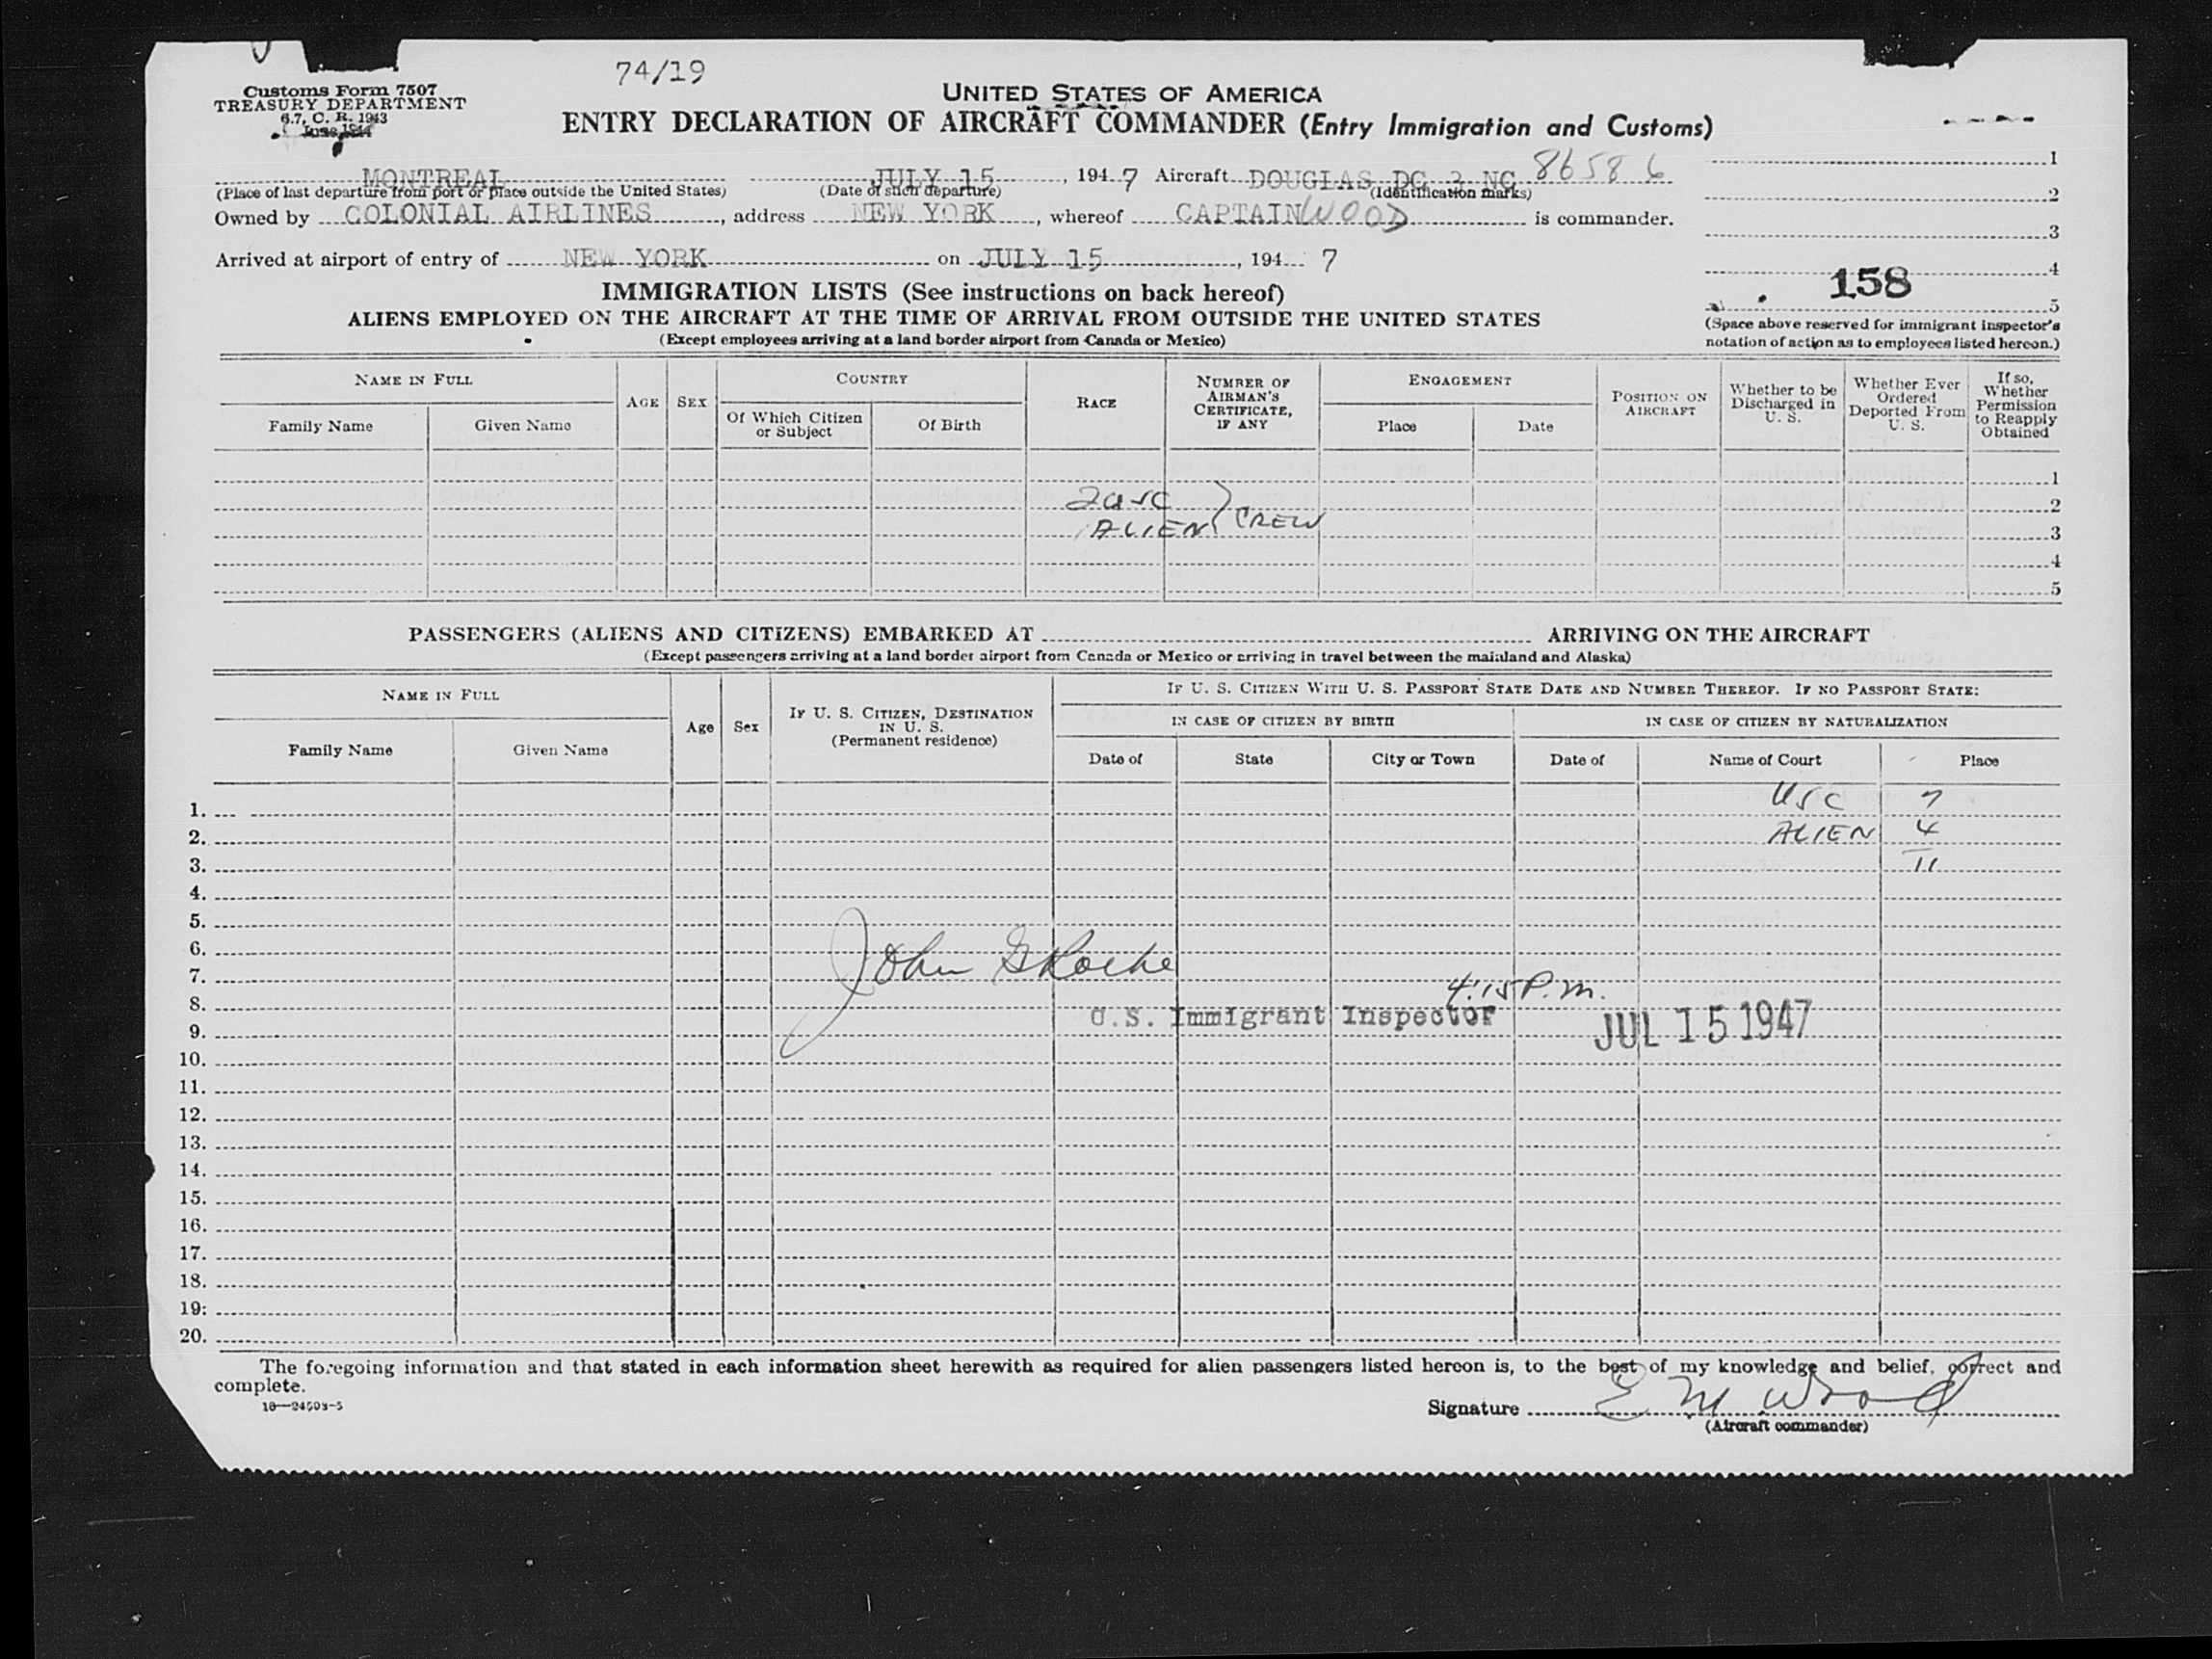 74/19
Customs Form 7507
TREASURY DEPARTMENT
6.7, C. R. 1943
June 1944
UNITED STATES OF AMERICA
ENTRY DECLARATION OF AIRCRAFT COMMANDER (Entry Immigration and Customs)
MONTREAL JULY 15, 1947 Aircraft DOUGLAS DC 3 NC 86586
(Place of last departure from port or place outside the United States) (Date of such departure) (Identification marks)
Owned by COLONIAL AIRLINES, address NEW YORK, whereof CAPTAIN WOOD is commander.
Arrived at airport of entry of NEW YORK on JULY 15, 194 7
1
2
3
4
158
5
(Space above reserved for immigrant inspector's
notation of action as to employees listed hereon.)
IMMIGRATION LISTS (See instructions on back hereof)
ALIENS EMPLOYED ON THE AIRCRAFT AT THE TIME OF ARRIVAL FROM OUTSIDE THE UNITED STATES
(Except employees arriving at a land border airport from Canada or Mexico)
NAME IN FULL
Family Name Given Name
AGE SEX
COUNTRY
Of Which Citizen or Subject Of Birth
RACE
NUMBER OF AIRMAN'S CERTIFICATE, IF ANY
ENGAGEMENT
Place Date
POSITION ON AIRCRAFT
Whether to be Discharged in U. S.
Whether Ever Ordered Deported From U. S.
If so, Whether Permission to Reapply Obtained
1
2 USC 2
ALIEN } CREW 3
4
5
PASSENGERS (ALIENS AND CITIZENS) EMBARKED AT ARRIVING ON THE AIRCRAFT
(Except passengers arriving at a land border airport from Canada or Mexico or arriving in travel between the mainland and Alaska)
NAME IN FULL
Family Name Given Name
Age Sex
IF U. S. CITIZEN, DESTINATION IN U. S.
(Permanent residence)
IF U. S. CITIZEN WITH U. S. PASSPORT STATE DATE AND NUMBER THEREOF. IF NO PASSPORT STATE:
IN CASE OF CITIZEN BY BIRTH IN CASE OF CITIZEN BY NATURALIZATION
Date of State City or Town Date of Name of Court Place
1. USC 7
2. ALIEN 4
3. 11
4.
5.
6.
7. John G Roche
8. 4:15 P.m.
9. U.S. Immigrant Inspector JUL 15 1947
10.
11.
12.
13.
14.
15.
16.
17.
18.
19.
20.
The foregoing information and that stated in each information sheet herewith as required for alien passengers listed hereon is, to the best of my knowledge and belief, correct and
complete.
16—24503-5
Signature E M Wood
(Aircraft commander)